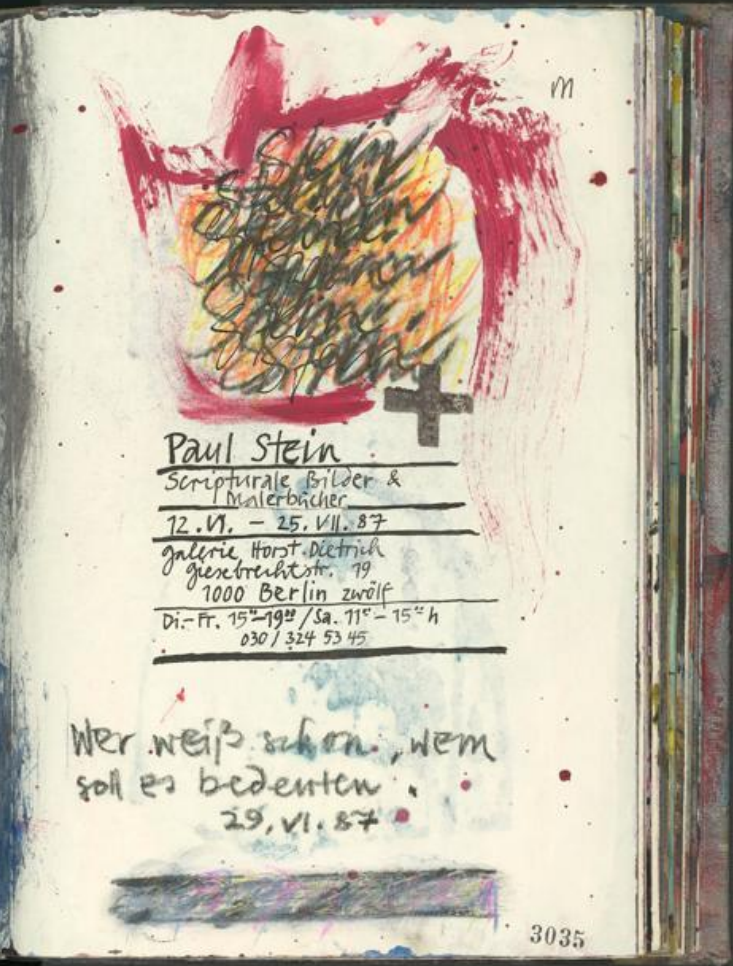 m
Stein
Stein
Paul Stein
Scripturale Bilder &
Malerbücher
12.VI. – 25.VII.87
galerie Horst Dietrich
giesebrechtstr. 19
1000 Berlin zwölf
Di.-Fr. 15°°-19°° / Sa. 11°° - 15°° h
030 / 324 53 45
Wer weiß schon, wem
soll es bedeuten.
29.VI.87
3035